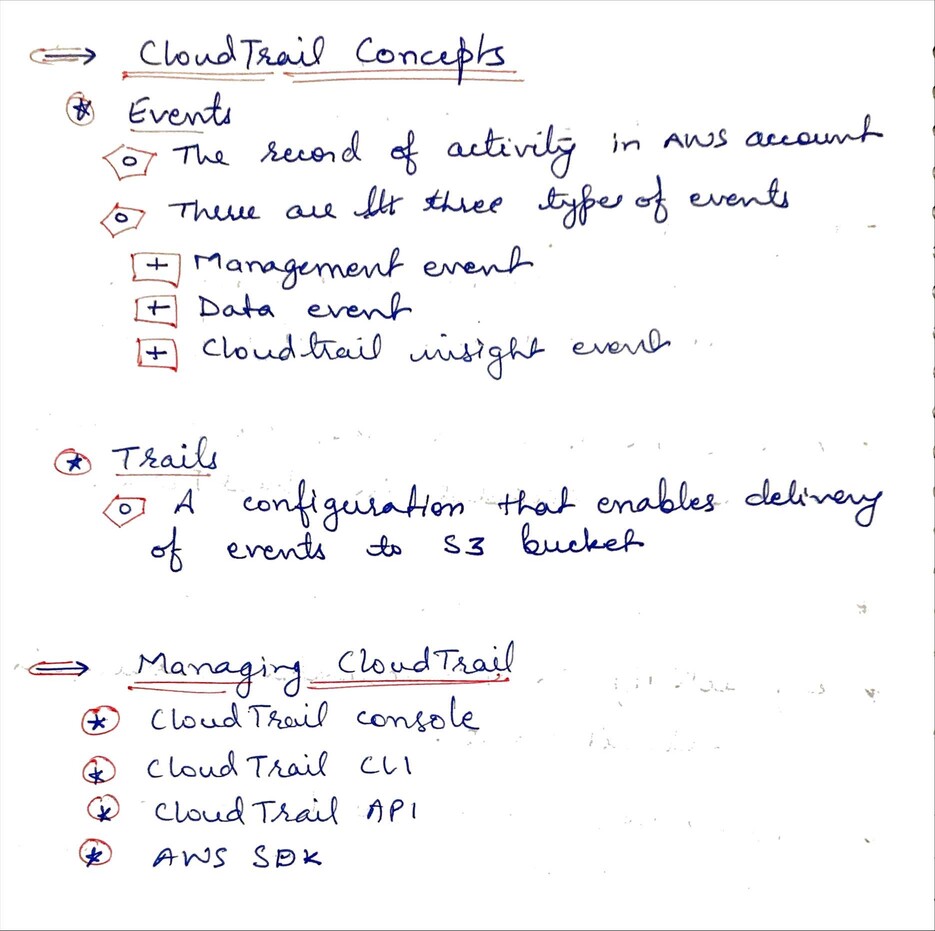 ⇒ CloudTrail Concepts
Events
The record of activity in AWS account
There are three type of events
+ Management event
+ Data event
+ Cloudtrail insight event
Trails
A configuration that enables delivery
of events to S3 bucket
⇒ Managing CloudTrail
CloudTrail console
CloudTrail CLI
CloudTrail API
AWS SDK